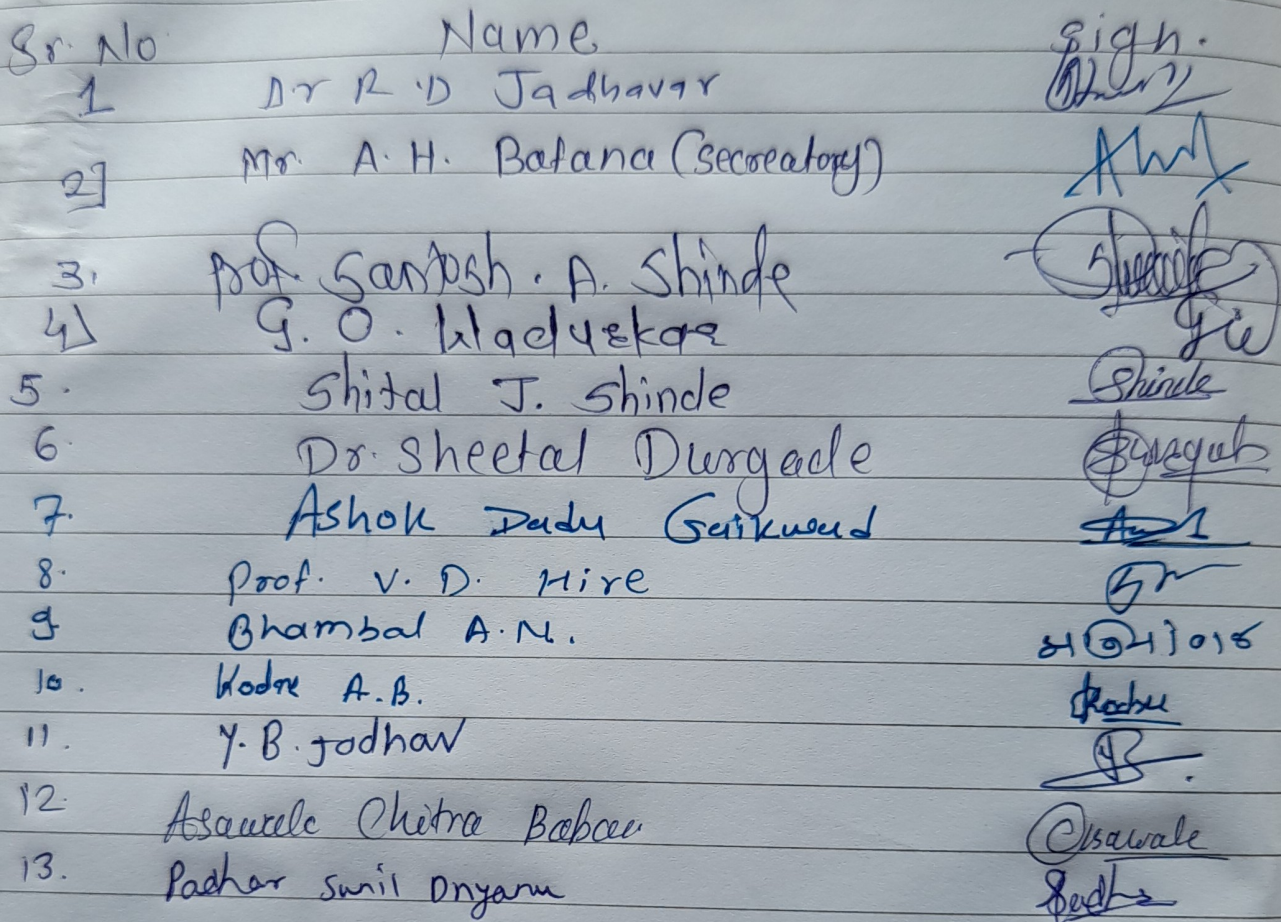 Sr. No Name sign.
1 Dr R.D Jadhavar
2] Mr. A. H. Batana (secoreatory)
3. Prof. Santosh. A. Shinde
4] G. O. Waduskar Giw
5. Shital J. Shinde Shinde
6. Dr. Sheetal Durgade
7. Ashok Dadu Gaikwad
8. Prof. V. D. Hire
9 Bhambal A.N.
10. Kodre A.B. Kodre
11. Y. B. Jadhav
12. Asawale Chitra Babau Asawale
13. Padhar Sunil Dnyanu